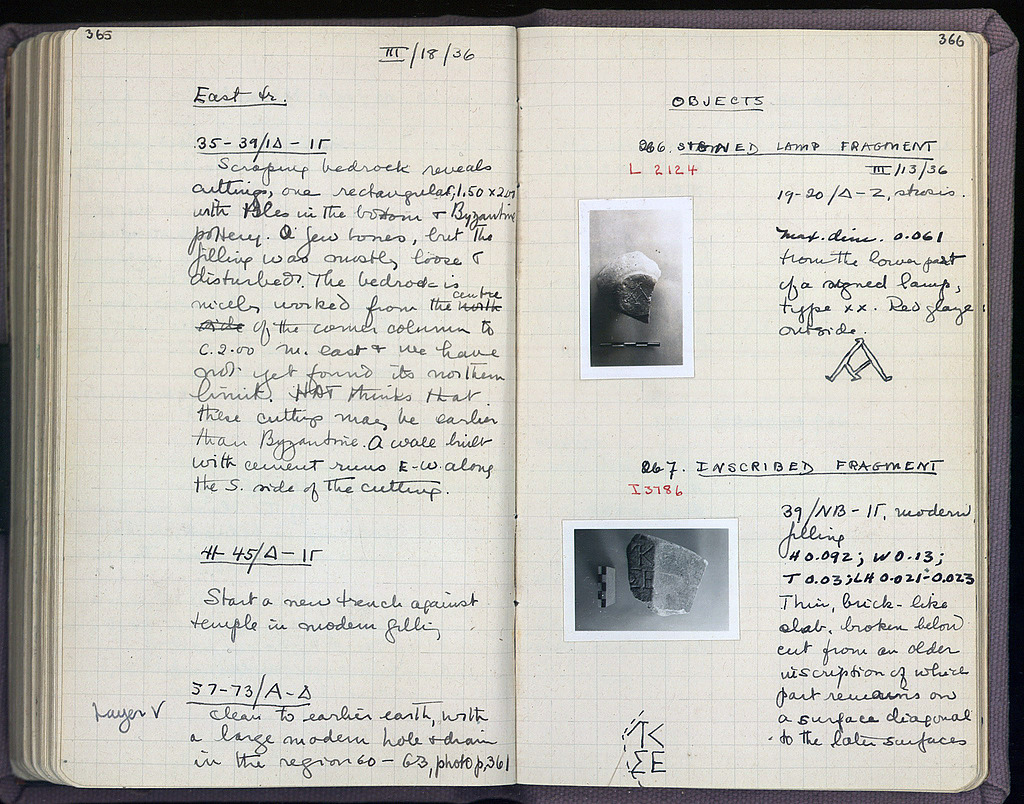 365
III/18/36
East tr.
35-39/ΙΔ-ΙΓ
Scraping bedrock reveals
cuttings, one rectangular, 1.50 x 2.
with tiles in the bottom & Byzantine
pottery. A few bones, but the
filling was mostly loose &
disturbed. The bedrock is
nicely worked from the centre
of the corner column to
c. 2.00 m. east & we have
not yet found its northern
limit. HAT thinks that
these cuttings may be earlier
than Byzantine. A wall built
with cement runs E-W. along
the S. side of the cutting.
45/Δ-ΙΓ
Start a new trench against
temple in modern filling
Layer V
57-73/Α-Δ
Clean to earlier earth, with
a large modern hole & drain
in the region 60-63, photo p. 361
366
OBJECTS
266. SIGNED LAMP FRAGMENT
L 2124
III/13/36
19-20/Δ-Ζ, strosis.
Max. dim. 0.061
From the lower part
of a signed lamp,
type XX. Red glaze
outside.
Α
267. INSCRIBED FRAGMENT
I 3786
39/ΝΒ-ΙΓ, modern
filling
H 0.092; W 0.13;
T 0.03; LH 0.021-0.023
Thin, brick-like
slab, broken below
cut from an older
inscription of which
part remains on
a surface diagonal
to the later surfaces
ΠΚ
ΣΕ